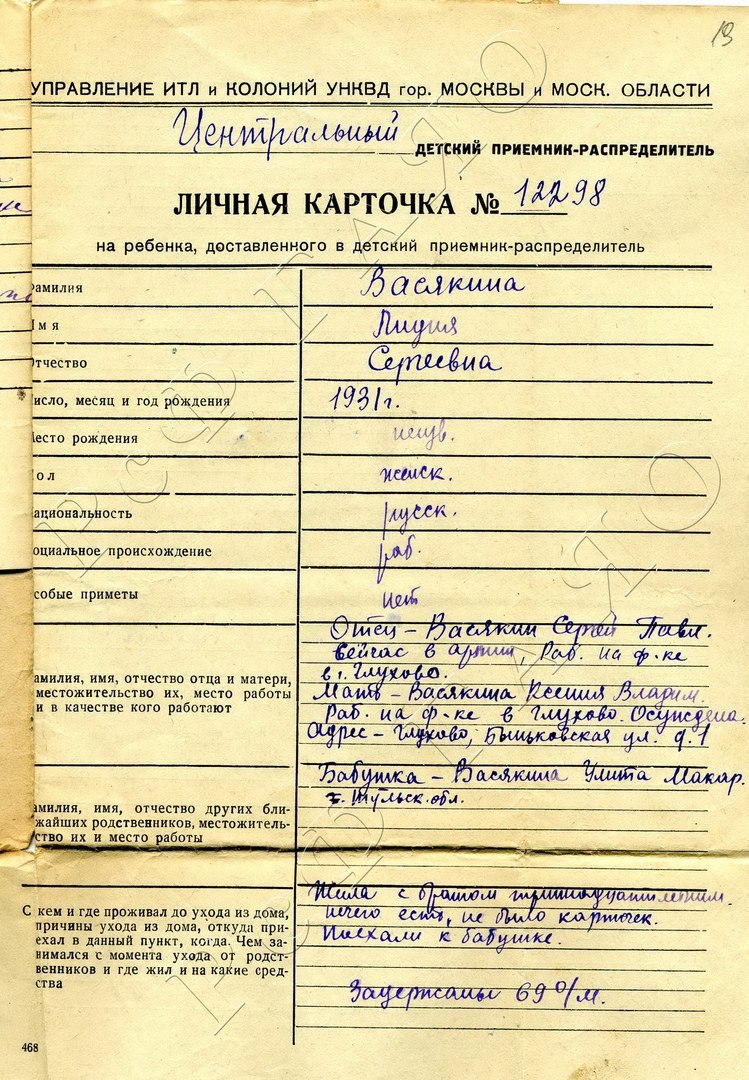 19
УПРАВЛЕНИЕ ИТЛ и КОЛОНИЙ УНКВД гор. МОСКВЫ и МОСК. ОБЛАСТИ
Центральный ДЕТСКИЙ ПРИЕМНИК-РАСПРЕДЕЛИТЕЛЬ
ЛИЧНАЯ КАРТОЧКА № 12298
на ребенка, доставленного в детский приемник-распределитель
амилия Васякина
мя Лидия
тчество Сергеевна
исло, месяц и год рождения 1931 г.
есто рождения неизв.
ол женск.
ациональность русск.
оциальное происхождение раб.
собые приметы нет
Отец – Васякин Сергей Павл.
сейчас в армии, Раб. на ф-ке
в г. Глухово.
амилия, имя, отчество отца и матери,
местожительство их, место работы
и в качестве кого работают
Мать – Васякина Ксения Владим.
Раб. на ф-ке в Глухово. Осуждена.
Адрес – Глухово, Быньковская ул. д. 1
Бабушка – Васякина Улита Макар.
Тульск. обл.
амилия, имя, отчество других бли-
жайших родственников, местожитель-
ство их и место работы
С кем и где проживал до ухода из дома,
причины ухода из дома, откуда при-
ехал в данный пункт, когда. Чем за-
нимался с момента ухода от родст-
венников и где жил и на какие сред-
ства
Жила с братом тринадцатилетним.
нечего есть, не было карточек.
Поехали к бабушке.
Задержаны 69 о/м.
468